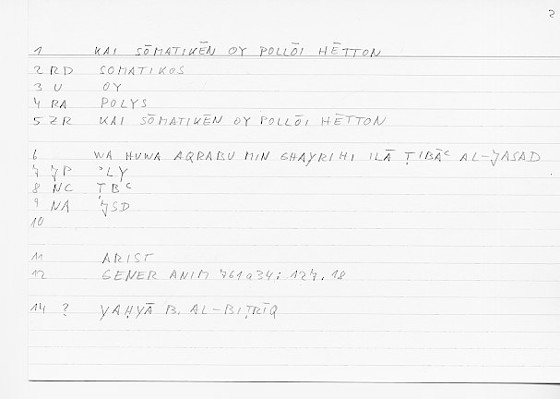 2
1 KAI SŌMATIKĒN OY POLLŌI HĒTTON
2 RD SOMATIKOS
3 U OY
4 RA POLYS
5 ZR KAI SŌMATIKĒN OY POLLŌI HĒTTON
6 WA HUWA AQRABU MIN GHAYRIHI ILĀ ṬIBĀʿ AL-JASAD
7 JP ʾLY
8 NC ṬBʿ
9 NA JSD
10
11 ARIST
12 GENER ANIM 761a34; 127.18
14 ? YAḤYĀ B. AL-BIṬRĪQ